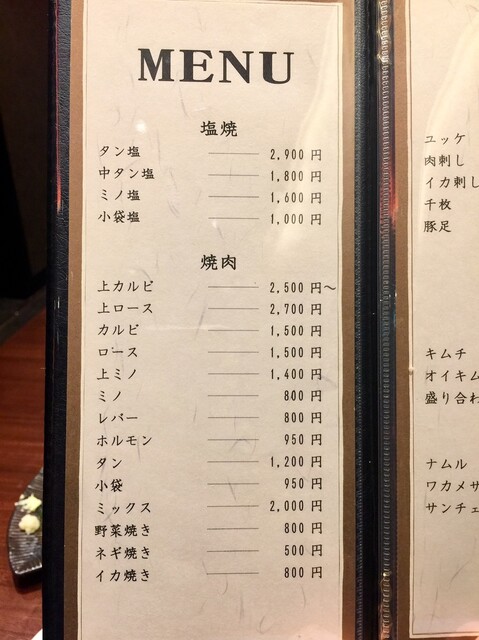 MENU
塩焼
タン塩 2,900円
中タン塩 1,800円
ミノ塩 1,600円
小袋塩 1,000円
焼肉
上カルビ 2,500円～
上ロース 2,700円
カルビ 1,500円
ロース 1,500円
上ミノ 1,400円
ミノ 800円
レバー 800円
ホルモン 950円
タン 1,200円
小袋 950円
ミックス 2,000円
野菜焼き 800円
ネギ焼き 500円
イカ焼き 800円
ユッケ
肉刺し
イカ刺し
千枚
豚足
キムチ
オイキム
盛り合わ
ナムル
ワカメサ
サンチェ